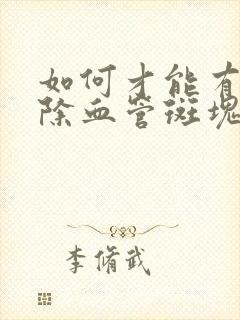 如何才能有
除血管斑块
李脩武